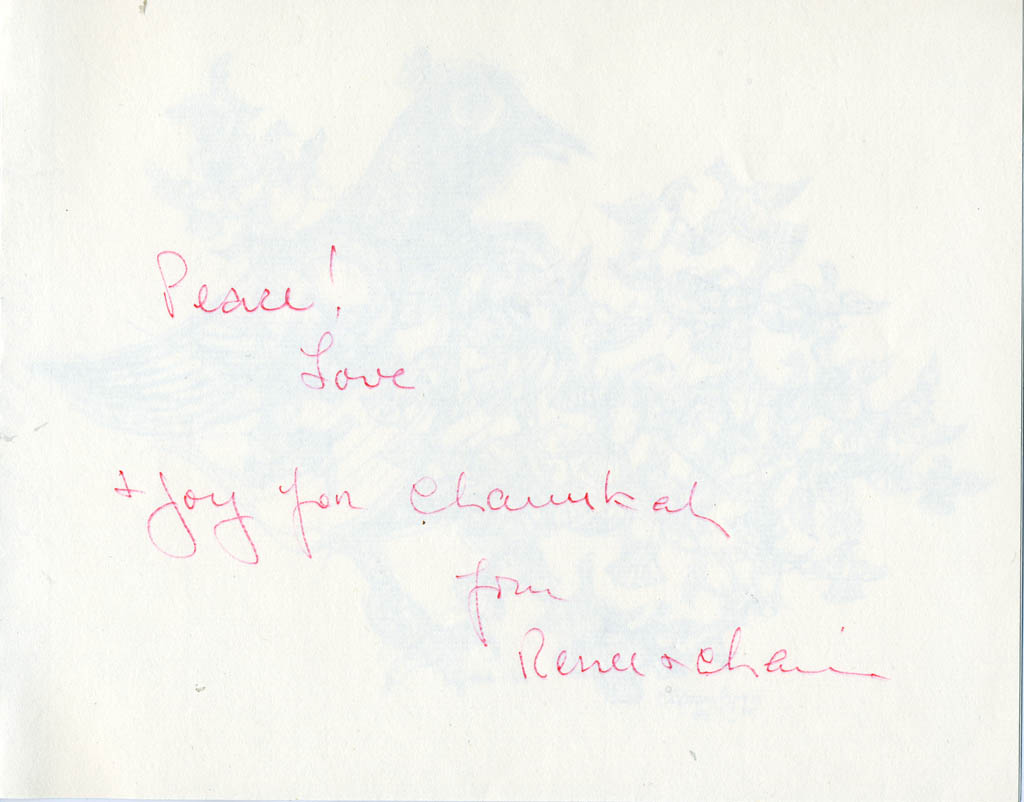 Peace!
Love
+ Joy for Chanukah
from
Renee + Chaim